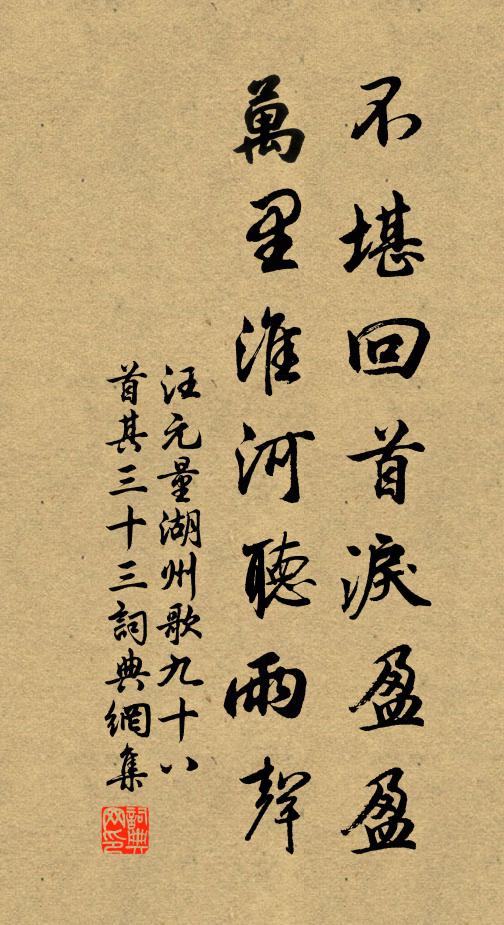 不堪回首淚盈盈
萬里淮河聽雨聲
汪元量湖州歌九十八
首其三十三詞典網集
詞典
网印